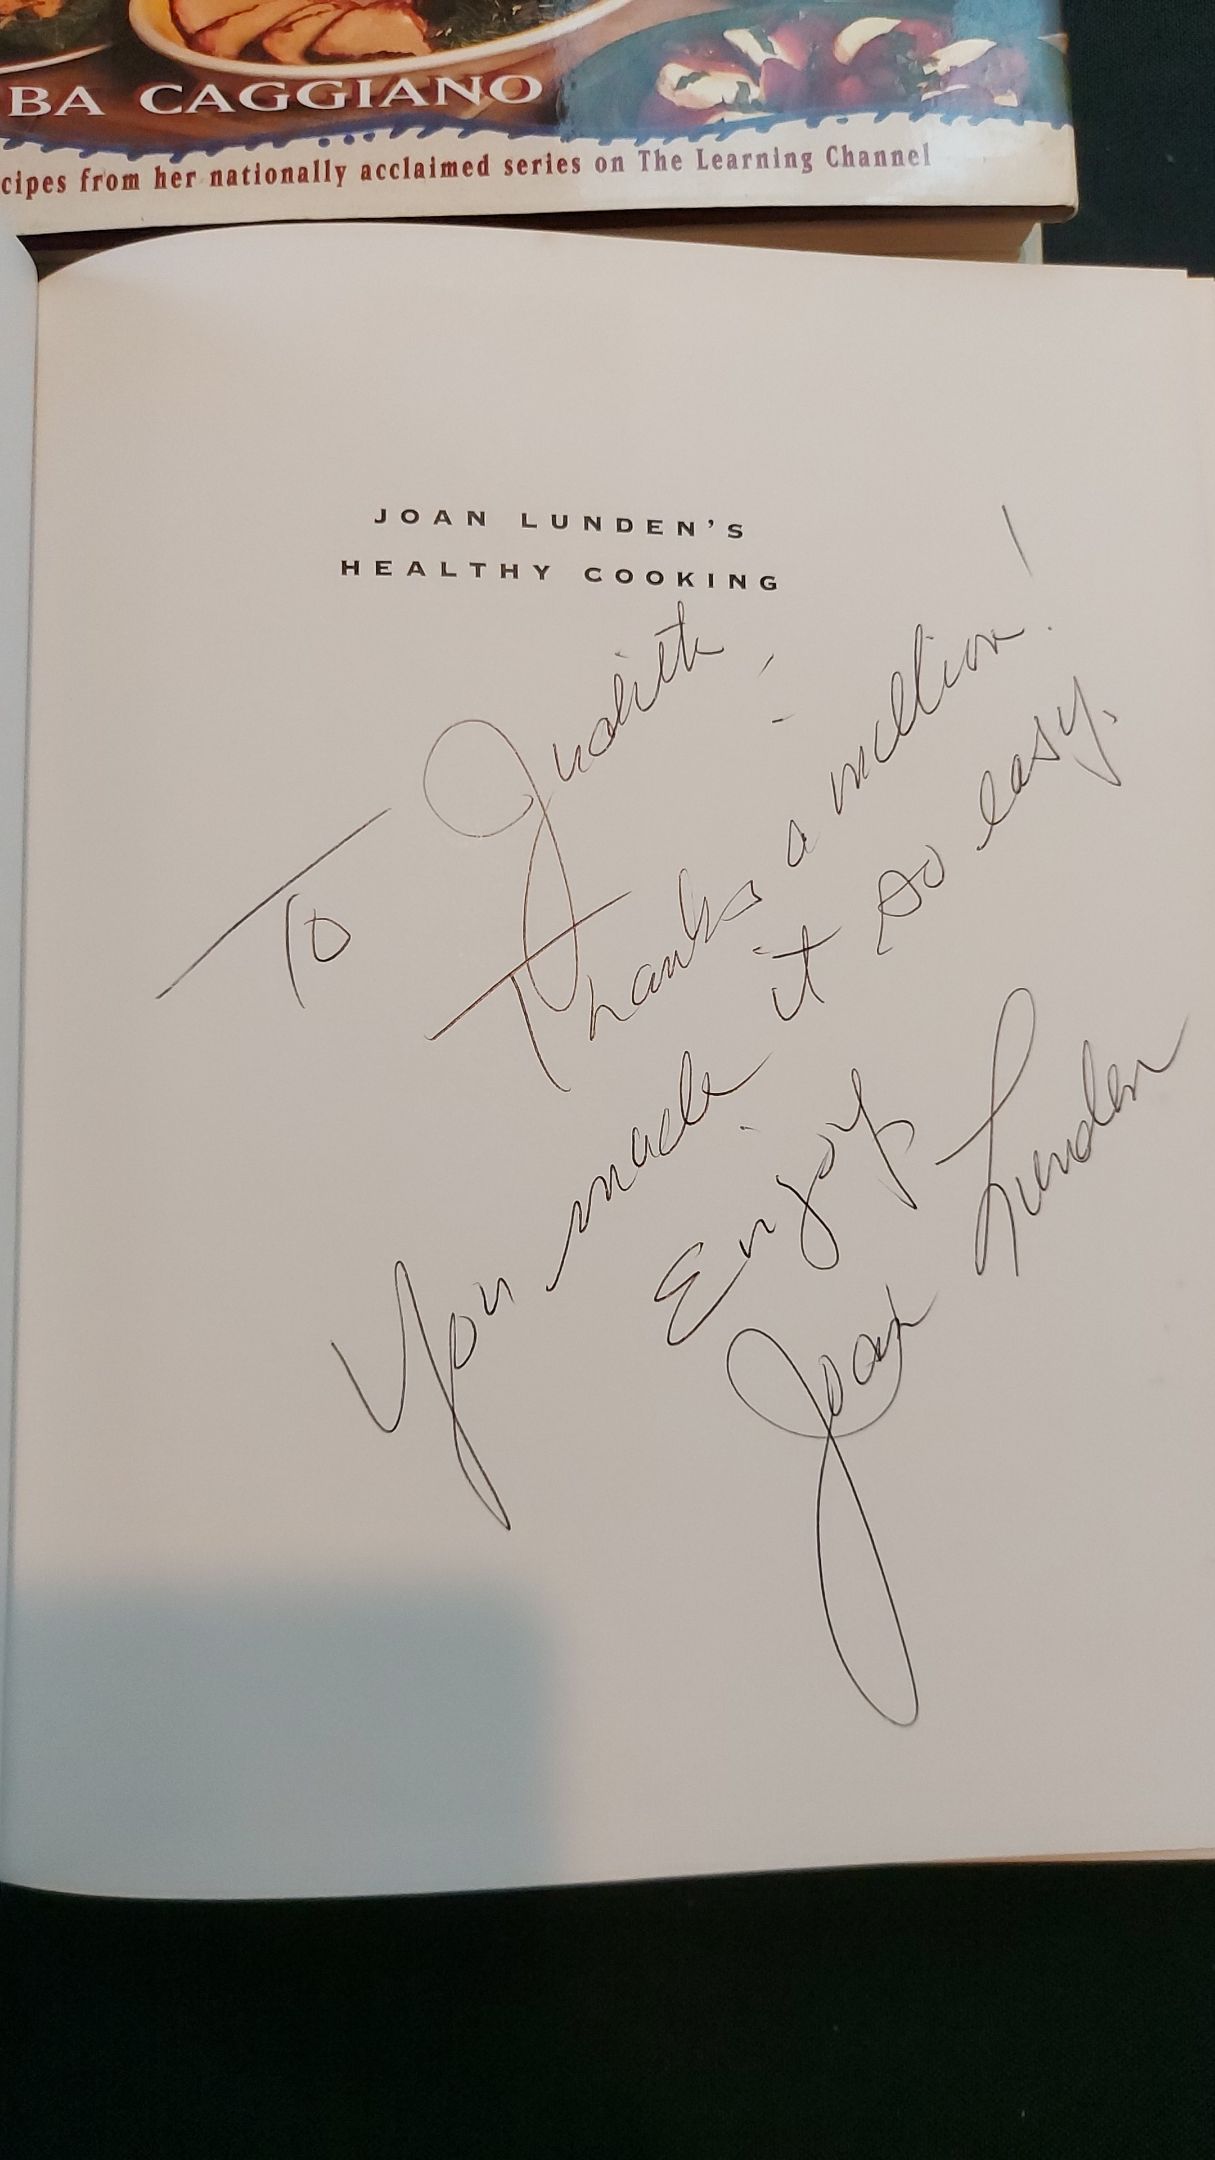 BA CAGGIANO
cipes from her nationally acclaimed series on The Learning Channel
JOAN LUNDEN'S
HEALTHY COOKING
To Judith -
Thanks a million!
You made it so easy.
Enjoy
Joan Lunden